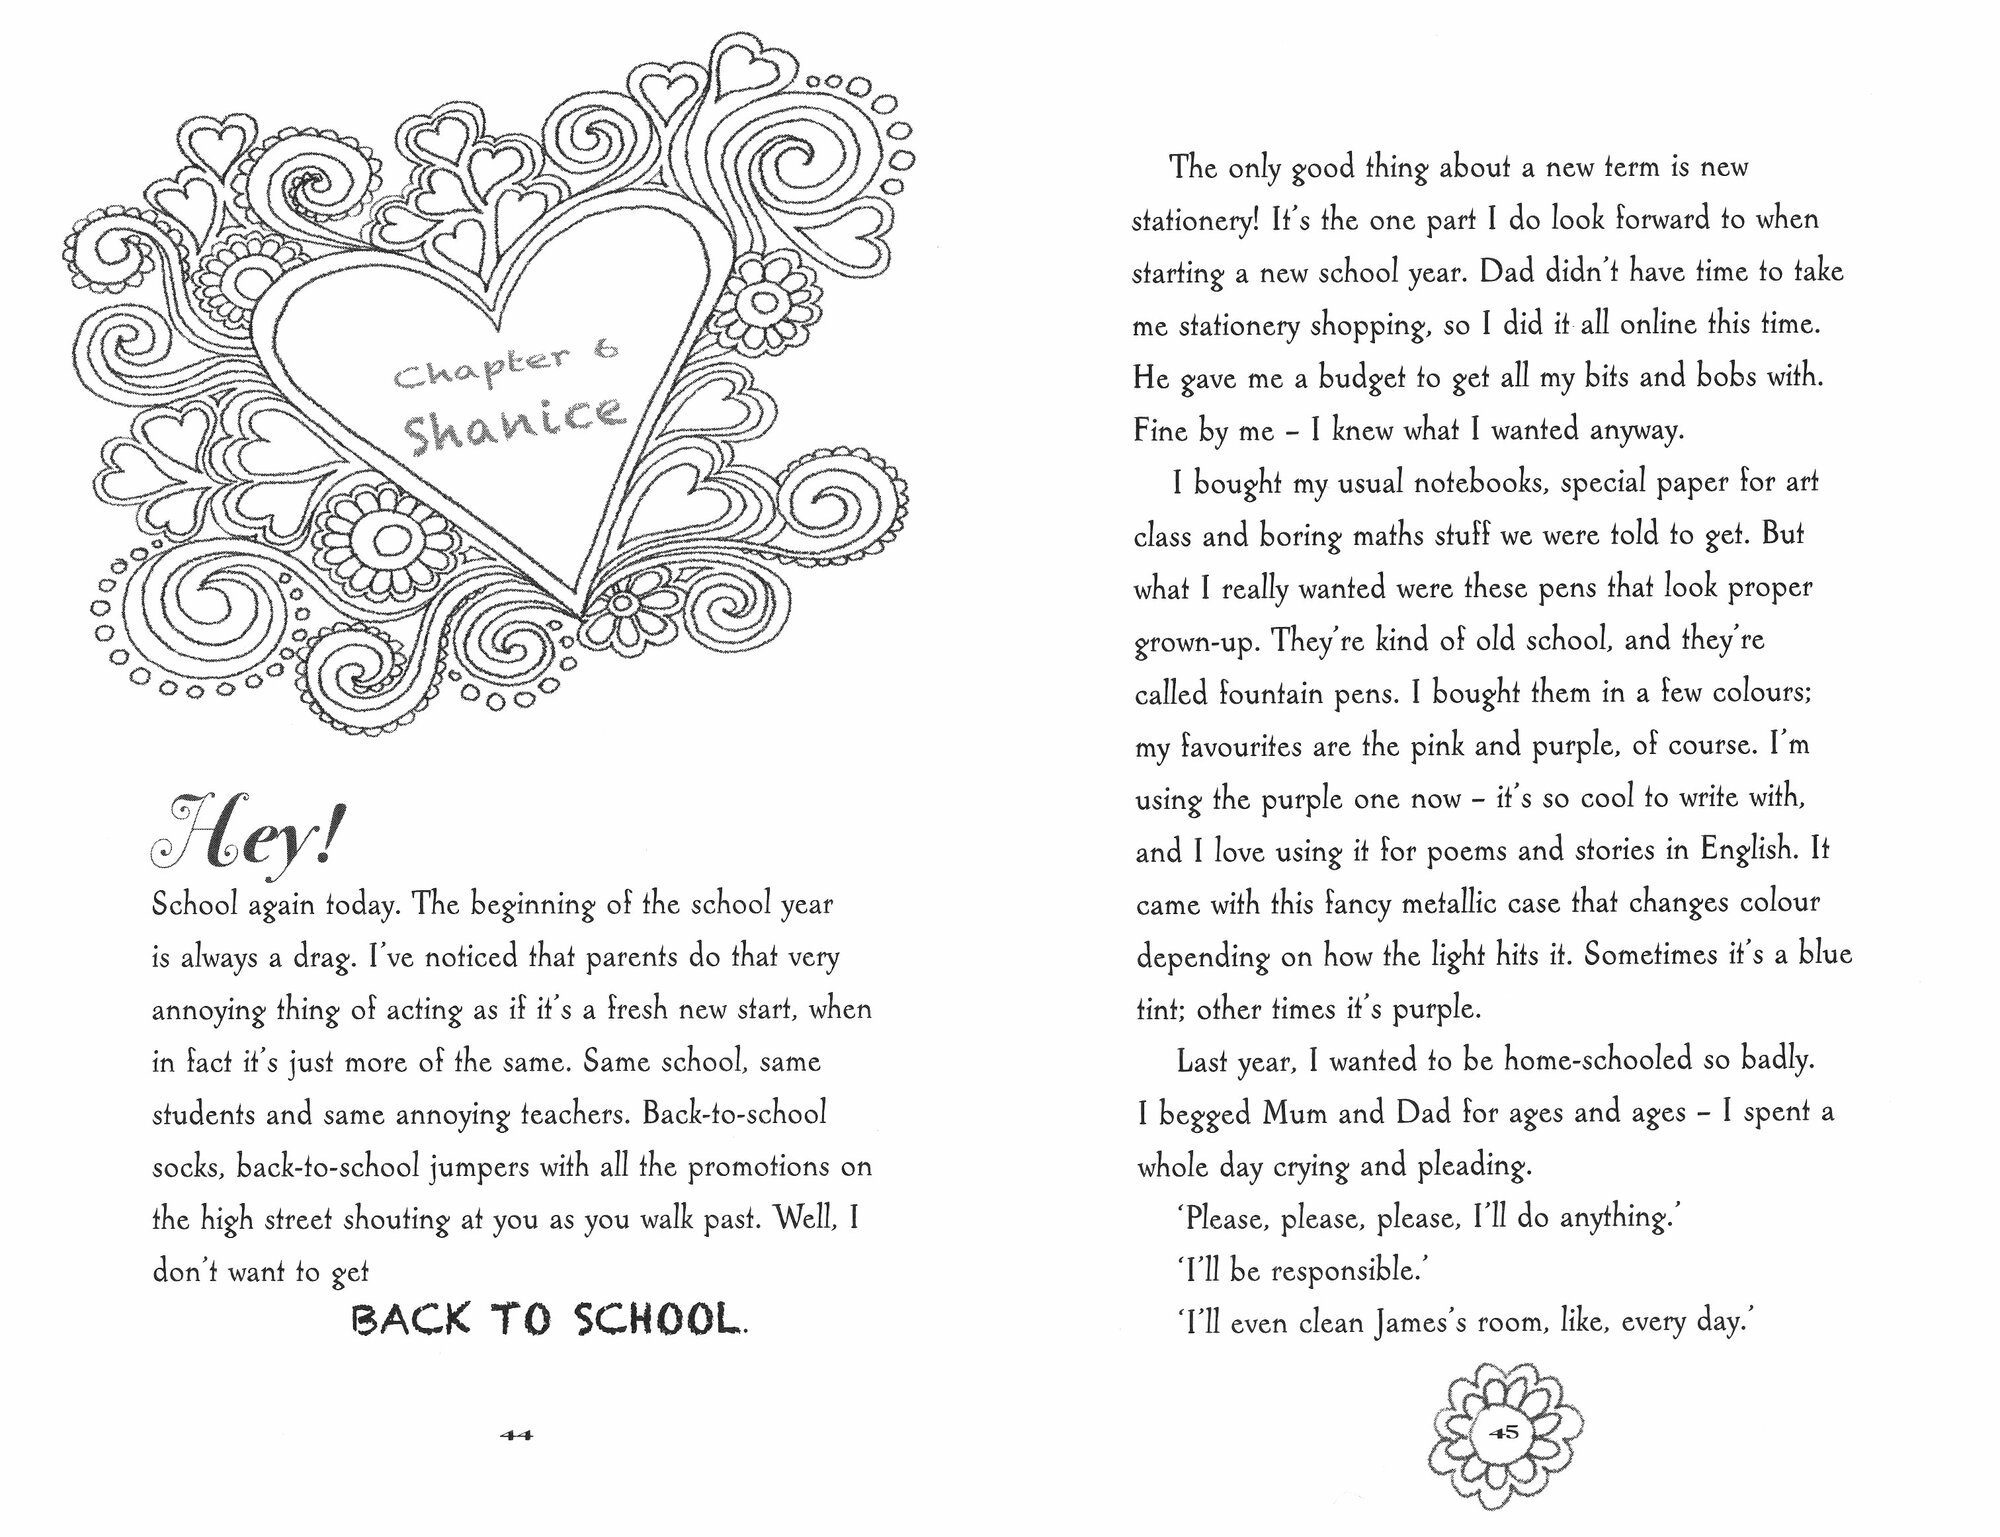 Chapter 6
Shanice
Hey!
School again today. The beginning of the school year
is always a drag. I've noticed that parents do that very
annoying thing of acting as if it's a fresh new start, when
in fact it's just more of the same. Same school, same
students and same annoying teachers. Back-to-school
socks, back-to-school jumpers with all the promotions on
the high street shouting at you as you walk past. Well, I
don't want to get
BACK TO SCHOOL.
44
The only good thing about a new term is new
stationery! It's the one part I do look forward to when
starting a new school year. Dad didn't have time to take
me stationery shopping, so I did it all online this time.
He gave me a budget to get all my bits and bobs with.
Fine by me – I knew what I wanted anyway.
I bought my usual notebooks, special paper for art
class and boring maths stuff we were told to get. But
what I really wanted were these pens that look proper
grown-up. They're kind of old school, and they're
called fountain pens. I bought them in a few colours;
my favourites are the pink and purple, of course. I'm
using the purple one now – it's so cool to write with,
and I love using it for poems and stories in English. It
came with this fancy metallic case that changes colour
depending on how the light hits it. Sometimes it's a blue
tint; other times it's purple.
Last year, I wanted to be home-schooled so badly.
I begged Mum and Dad for ages and ages – I spent a
whole day crying and pleading.
'Please, please, please, I'll do anything.'
'I'll be responsible.'
'I'll even clean James's room, like, every day.'
45